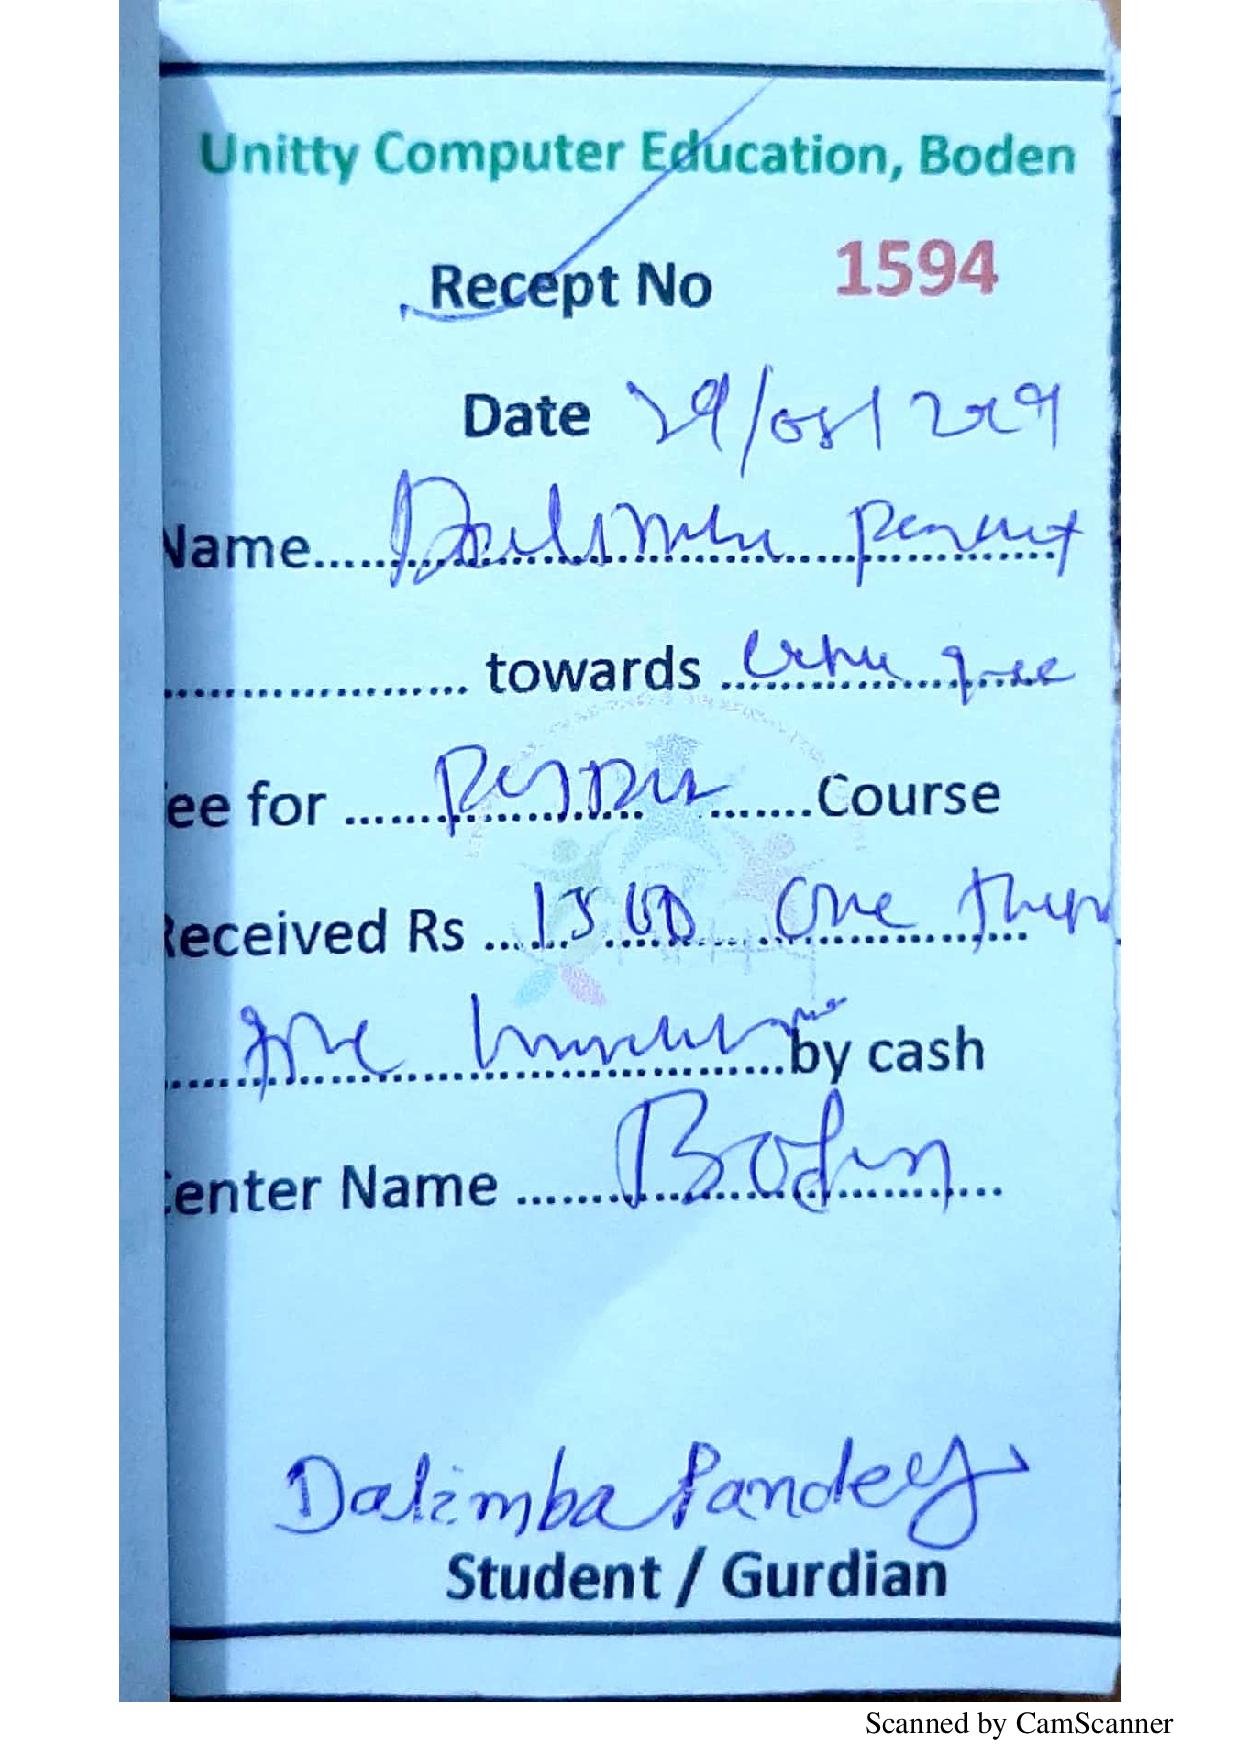 Unitty Computer Education, Boden
Recept No 1594
Date 29/08/2019
Name.......Dalimba
.................... towards ..........fee
ee for .................Course
Received Rs ...1500 One
five by cash
enter Name ......Boden
Dalimba Pandey
Student / Gurdian
Scanned by CamScanner